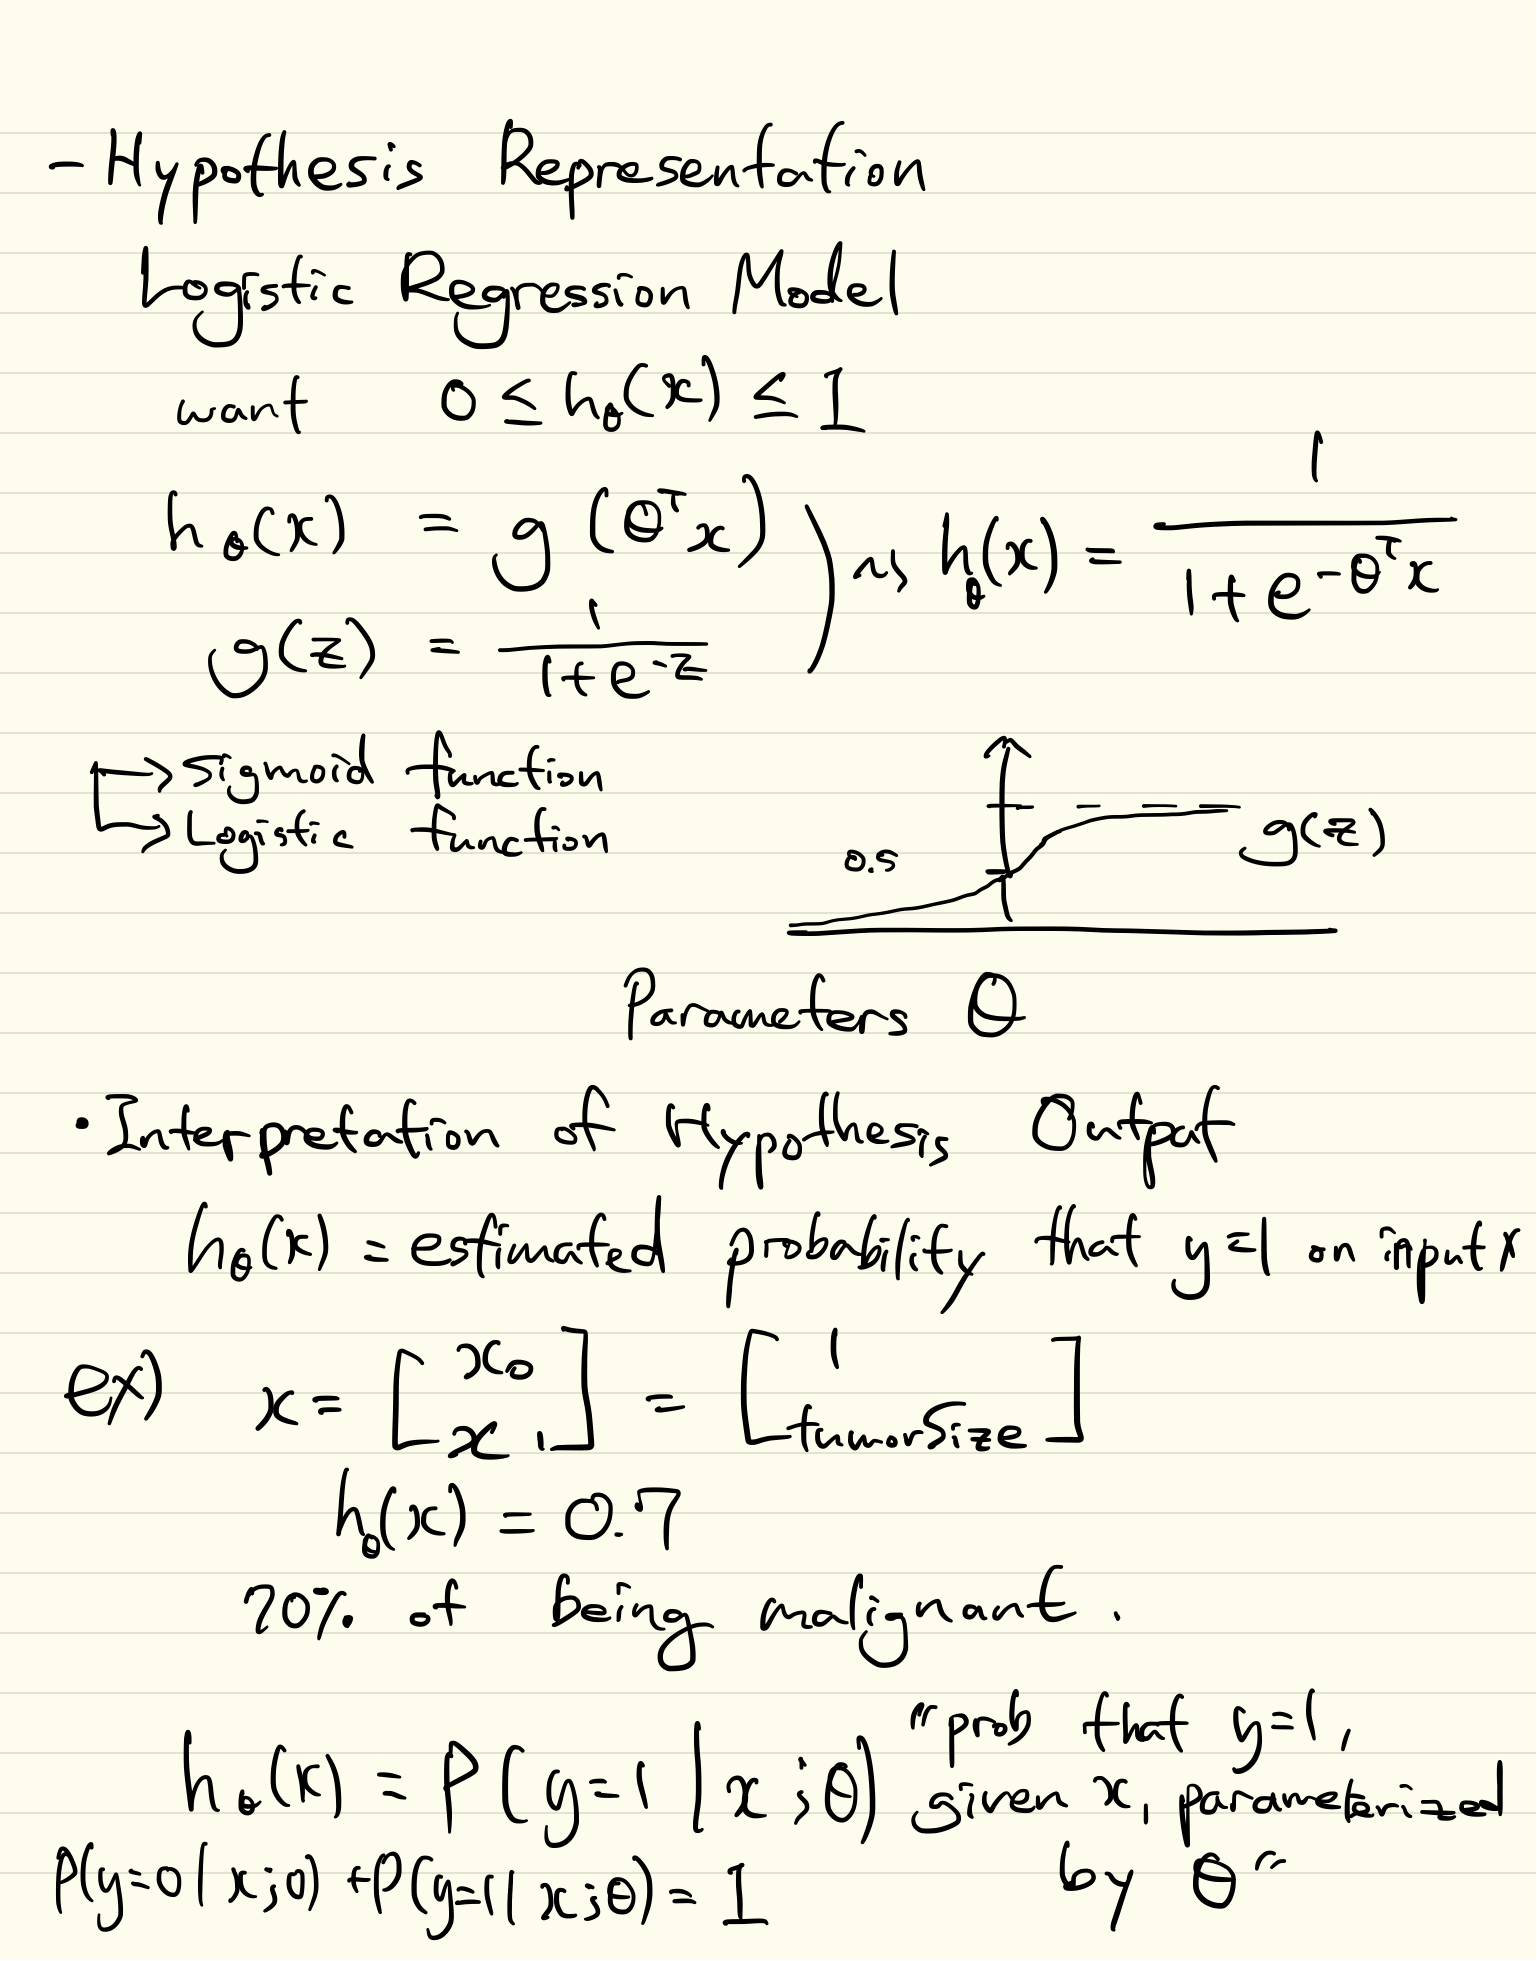 - Hypothesis Representation
Logistic Regression Model
want 0 ≤ hθ(x) ≤ 1
hθ(x) = g(θᵀx)
g(z) = 1 / (1+e^-z)
⇝ hθ(x) = 1 / (1+e^-θᵀx)
→ Sigmoid function
→ Logistic function
0.5
g(z)
Parameters θ
• Interpretation of Hypothesis Output
hθ(x) = estimated probability that y=1 on input x
ex) x = [x₀ x₁] = [1 tumorSize]
hθ(x) = 0.7
70% of being malignant.
hθ(x) = P(y=1 | x ; θ) "prob that y=1,
given x, parameterized
by θ"
P(y=0 | x;θ) + P(y=1 | x;θ) = 1